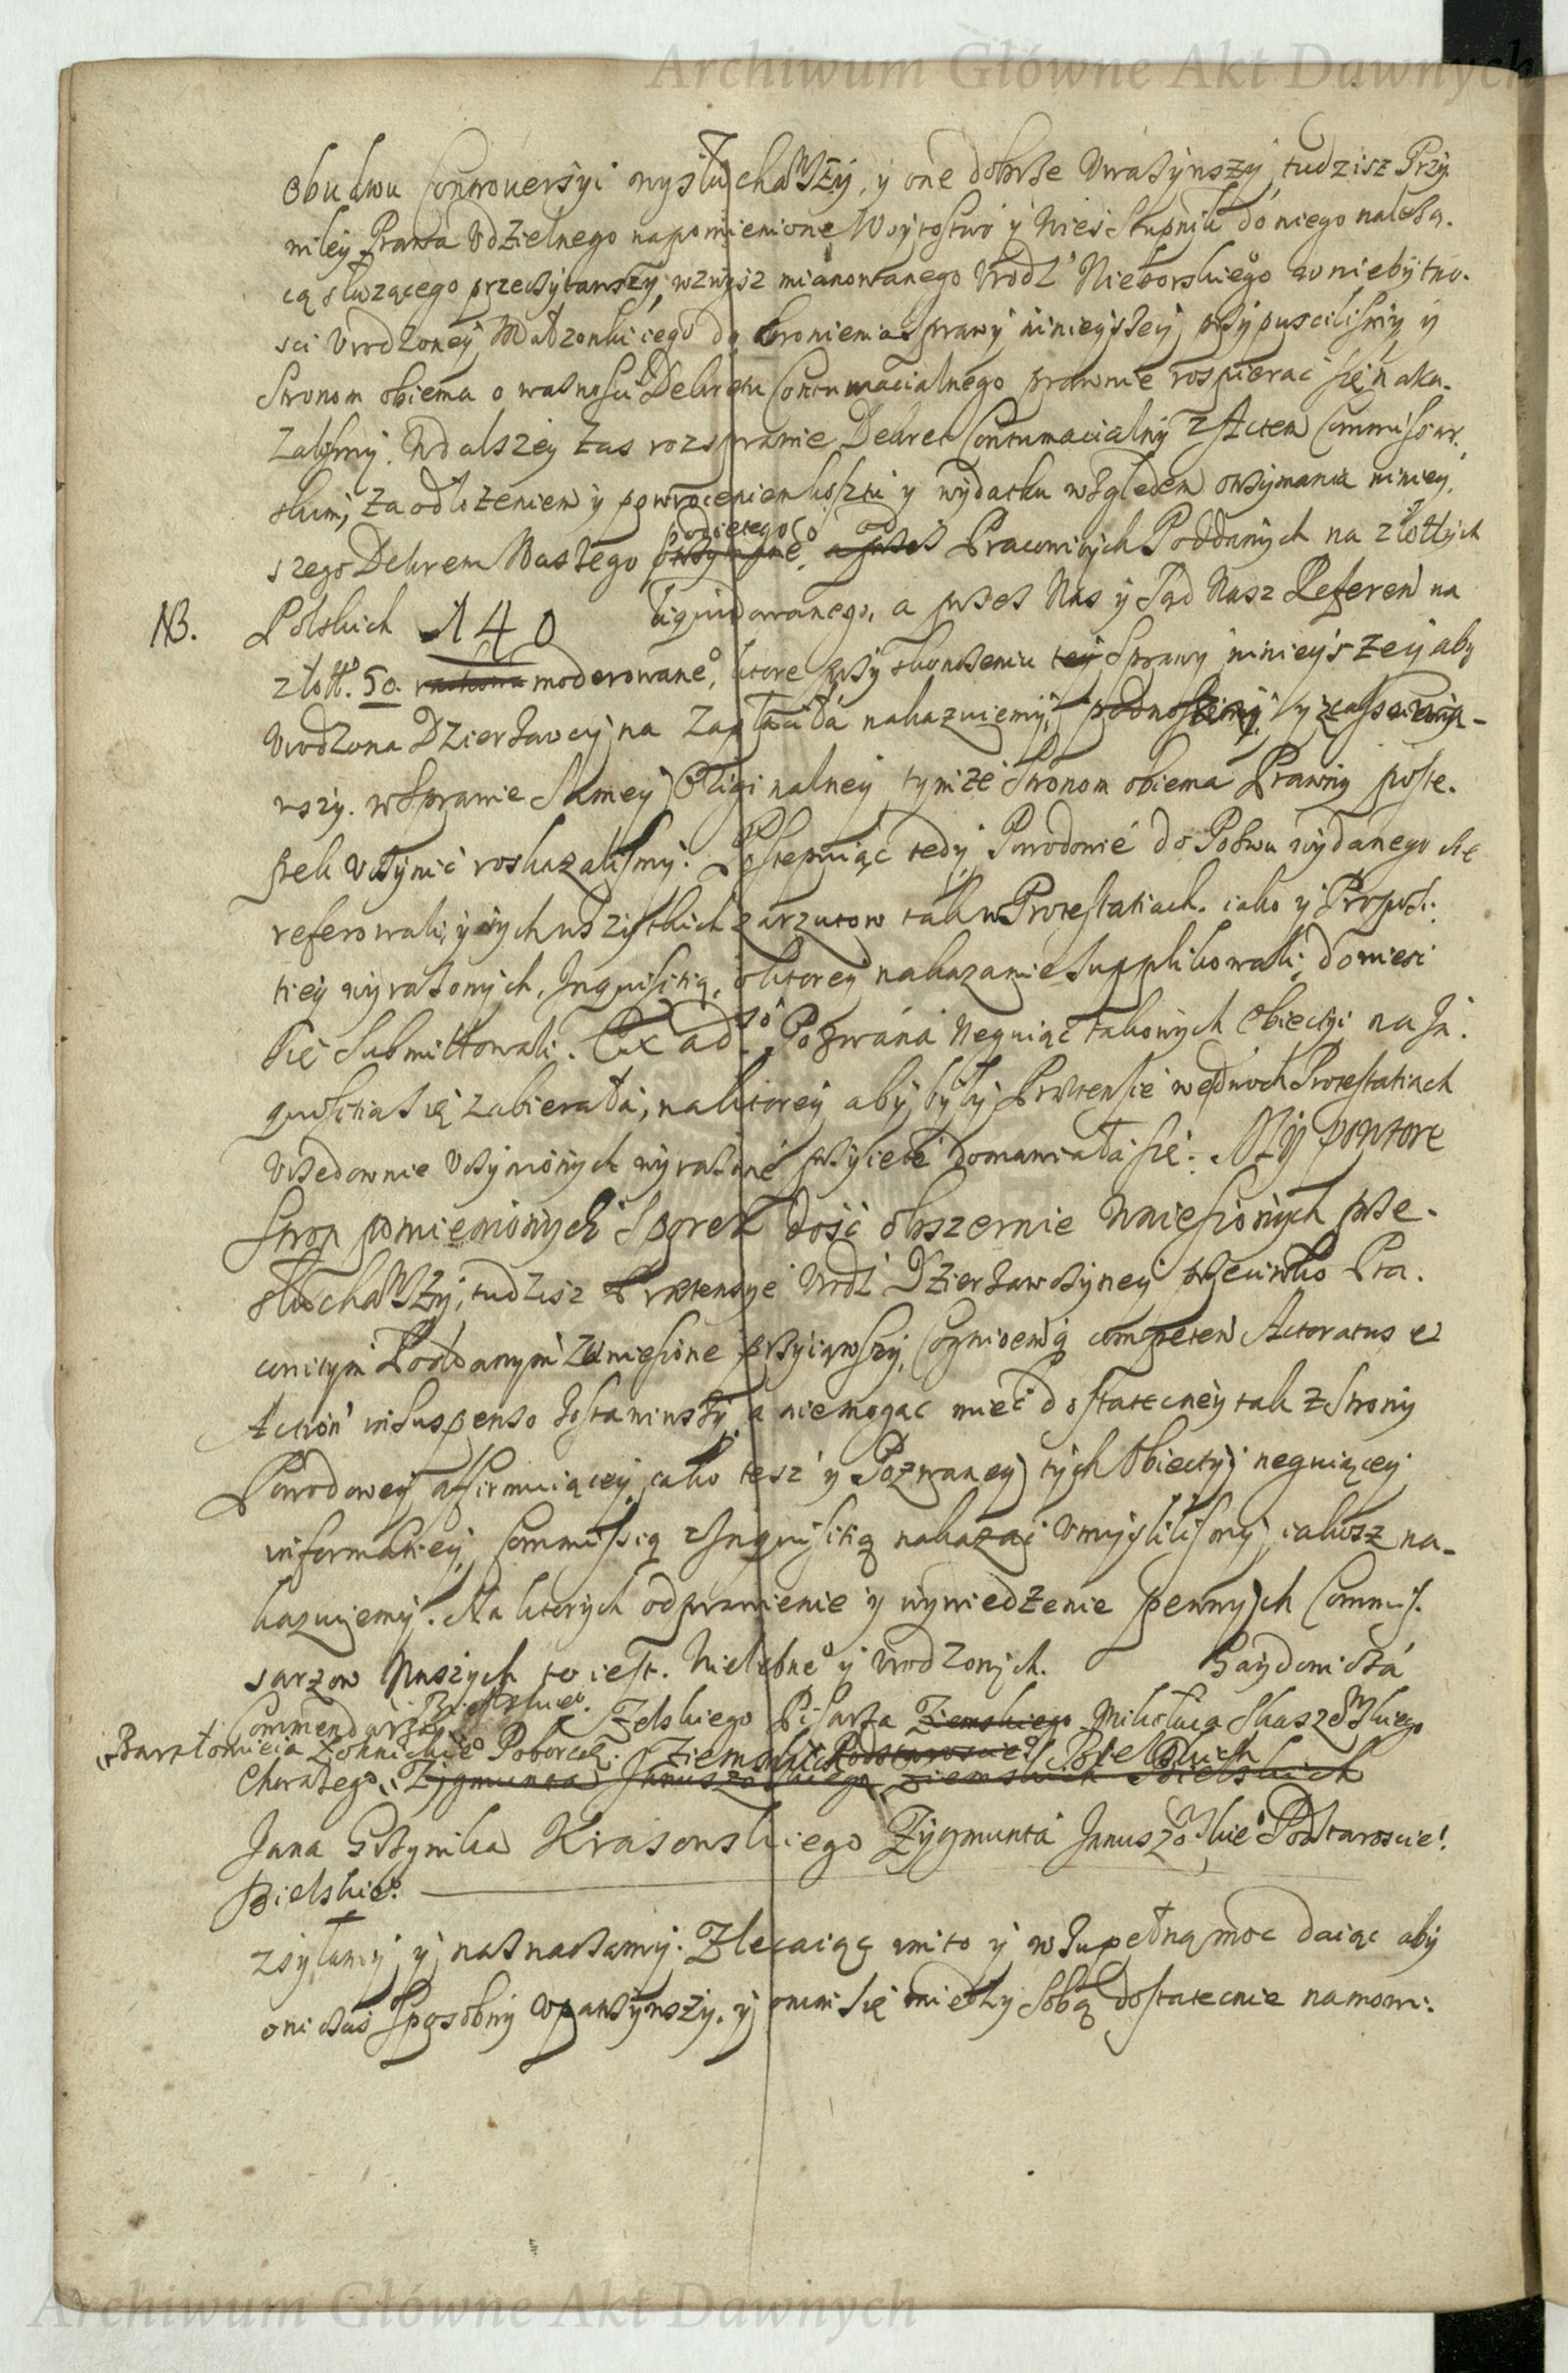 Archiwum Główne Akt Dawnych
obudwu Controversyi wysłuchawszy, y one dobrze uważywszy, tudzisz Przy.
wiley Prawa udzielnego napomienione Woytostwo y Wieś Stupnik do niego należą.
cą służącego przeczytawszy, wzwysz mianowanego Urodz. Nieborskiego w niebytno.
sci Urodzoney Małżonki iego do bronienia sprawy ninieyszey przypuscilismy y
Stronom obiema o ważnosci Dekretu Contumacialnego prawnie rospierać się naka.
zalismy. W dalszey zas rozsprawie Dekret Contumacialny z Actem Commissar.
skim, za odłożeniem y powroceniem kosztu y wydatku względem otrzymania niniey.
szego Dekretu Naszego podiętego od Pracowitych Poddanych na złottych
NB. Polskich 140 liquidowanego, a przez Nas y Sąd Nasz Referen na
złott. 50. moderowane°, ktore przy skonczeniu tey Sprawy ninieyszey aby
Urodzona Dzierżawczyna zapłaciła nakazuiemy, podnosiemy, y
wszy. w Sprawie Samey Originalney tymze Stronom obiema Prawny poste.
pek uczynić roskazalismy. Postempuiąc tedy Powodowie do Pozwu wydanego się
referowali, y tych wszystkich zarzutow tak w Protestatiach. iako y Proposi.
tiey wyrażonych, Inquisitią, o ktorey nakazanie supplikowali, dowiesć
się Submittowali. Ex ad° so Pozwana Neguiąc takowych Obiectyi na In.
quisitia się zabierała, na ktorey aby były Praetensie w ednoch Protestatiach
Urzedownie uczynionych wyrażone przyięte domawiała się. My powtore
Stron pomienionych Sporek dość obszernie wniesionych prze.
słuchawszy, tudzisz Praetensye Urodz. Dzierżawczyney przeciwko Pra.
cowitym Poddanym zaniesione przyiąwszy, Cognicen ą competen Actoratus et
Action in Suspenso zostawiwszy, a niemogąc mieć dostateczney tak z Strony
Powodowey affirmuiącey, iako tesz y Pozwaney tych Obiectyi neguiącey
informatiey, Commissią z Inquisitią nakazać umyslilismy, iakosz na-
kazuiemy. Na ktorych odprawienie y wywiedzenie pewnych Commis.
sarzow Naszych to iest. Wielebne° y Urodzonych. Gaydonicza
Commendarza Bielskie°. Zelskiego Pisarza Ziemskiego Mikołaia Skaszewskiego
Bartłomieia Łoknickie° Poborcę. Ziemskich Podstaroscie° Bielskich
Chorążego, Zygmunta Januszowskiego ziemskich Bielskich
Jana Gzymiłka Krasowskiego Zygmunta Januszowskie° Podstaroscie°.
Bielskie°.
zsyłamy y naznaczamy. Zlecaiąc im to y w zupełną moc daiąc aby
oni czas sposobny upatrzywszy, y onim się miedzy sobą dostatecznie namowi.
Archiwum Główne Akt Dawnych